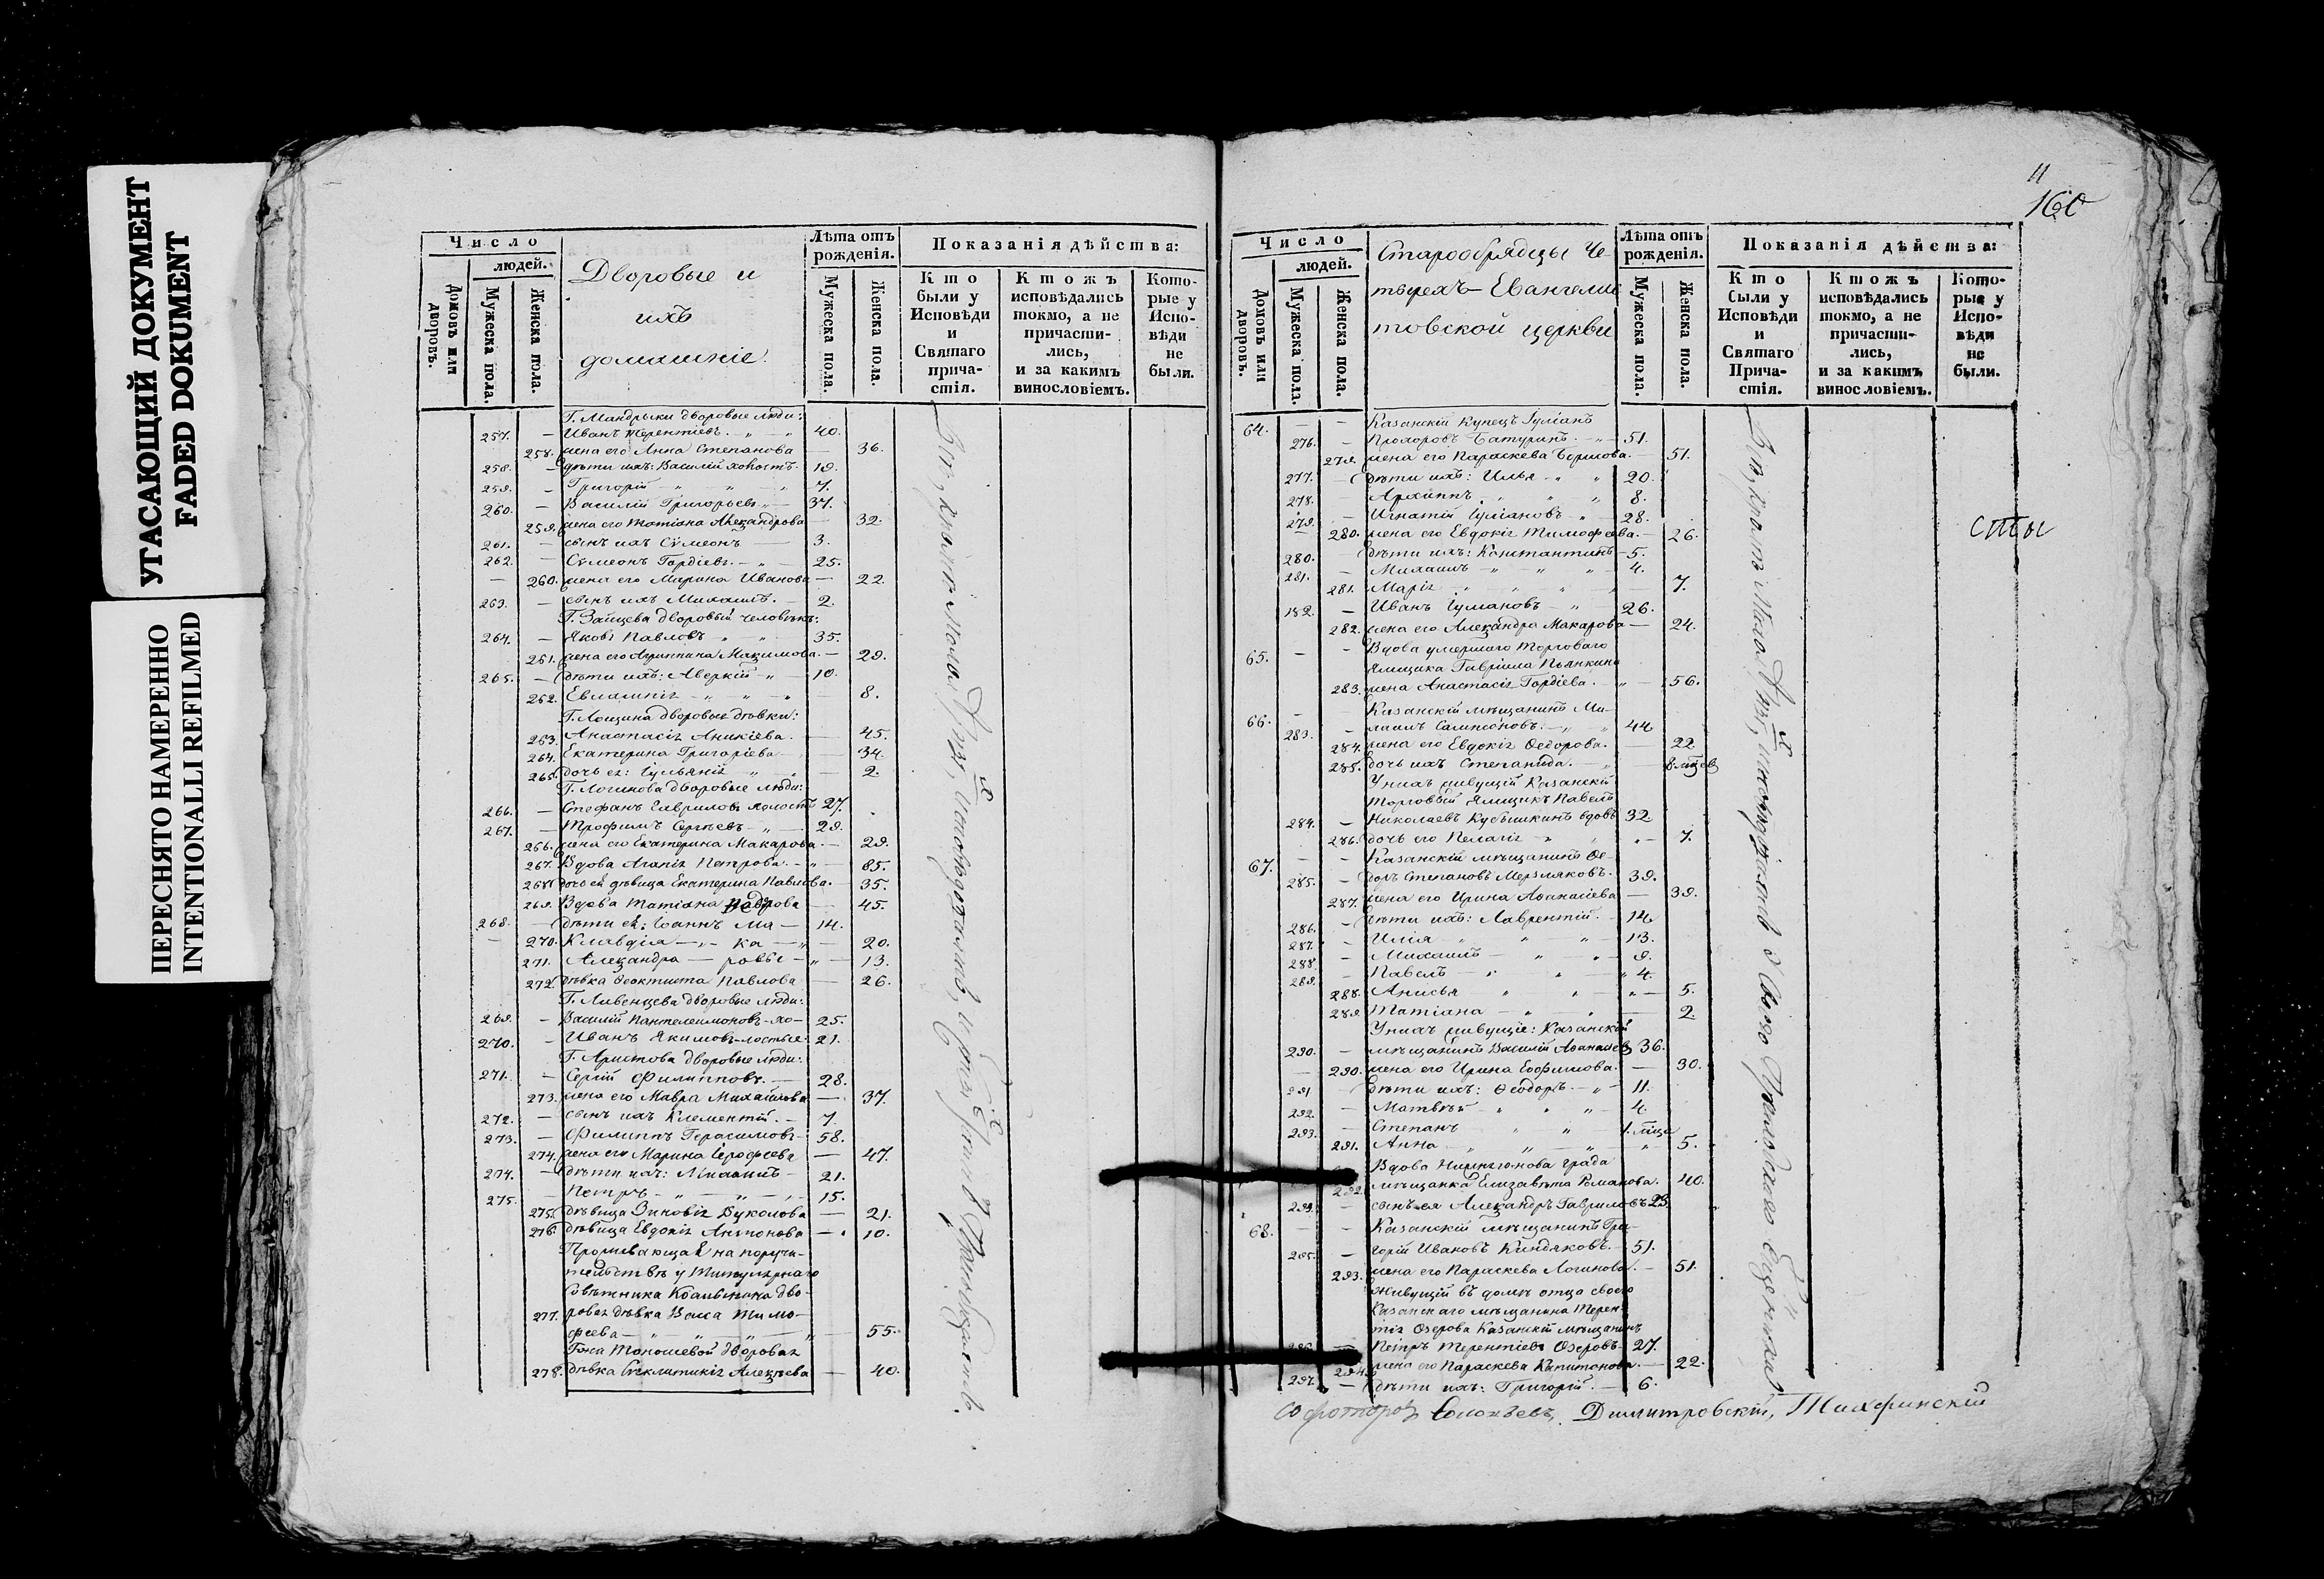 УГАСАЮЩИЙ ДОКУМЕНТ
FADED DOKUMENT
ПЕРЕСНЯТО НАМЕРЕННО
INTENTIONALLI REFILMED
Число
людей.
Домовъ или дворовъ.
Мужеска пола.
Женска пола.
Дворовые и
ихъ
домашніе.
Лѣта отъ рожденія.
Мужеска пола.
Женска пола.
Показанія дѣйства:
Кто были у Исповѣди и Святаго причастія.
Ктожъ исповѣдались токмо, а не причастились, и за какимъ винословіемъ.
Которые у Исповѣди не были.
Г. Мандрыки дворовые люди:
257. — Иванъ Терентіевъ. 40.
258. жена его Анна Степанова — 36.
258. — дѣти ихъ: Василій холостъ. 19.
259. — Григорій 7.
260. — Василій Григорьевъ 37.
259. жена его Татіана Александрова — 32.
261. — сынъ ихъ Сѵмеонъ — 3.
262. — Сѵмеонъ Гордіевъ. 25.
— 260. жена его Марина Иванова — 22.
263. — сынъ ихъ Михаилъ. — 2.
Г. Зайцева дворовый человѣкъ:
264. — Яковъ Павловъ 35.
261. жена его Агриппина Максимова. — 29.
265. — дѣти ихъ: Аверкій 10.
262. Евлампія 8.
Г. Лощина дворовыя дѣвки:
263. Анастасія Аникіева. — 45.
264. Екатерина Григоріева 34.
265. дочь ея: Іуліанія — 2.
Г. Логинова дворовые люди:
266. — Стефанъ Гавриловъ холостъ 27.
267. — Трофимъ Сергѣевъ 29.
266. жена его Екатерина Макарова. — 29.
267. Вдова Агапія Петрова. 65.
268. дочь ея дѣвица Екатерина Павлова. — 35.
269. Вдова Татіана — 45.
268. — дѣти ея: Іоаннъ Ма — 14.
— 270. Клавдія — ка — 20.
271. Александра — ровы — 13.
272. дѣвка Ѳеоктиста Павлова — 26.
Г. Ливенцева дворовые люди:
269. — Василій Пантелеимоновъ-хо— 25.
270. — Иванъ Якимовъ-лостые. 21.
Г. Аристова дворовые люди:
271. — Сергій Филипповъ. — 28.
273. жена его Мавра Михайлова — 37.
272. — сынъ ихъ Климентій. — 7.
273. — Филиппъ Герасимовъ 58.
274. жена его Марина Ерофеева — 47.
274. — дѣти ихъ: Михаилъ 21.
275. — Петръ 15.
275. дѣвица Зиновія Вуколова — 21.
276. дѣвица Евдокія Антонова — 10.
Проживающая на поручи-
тельствѣ у Титулярнаго
Совѣтника дво-
277. ровая дѣвка Васса Тимо-
феева 55.
дворовая
278. дѣвка Сѵнклитикія Алексѣева — 40.
11
160
Число
людей.
Домовъ или дворовъ.
Мужеска пола.
Женска пола.
Старообрядцы Че-
тырехъ-Евангелис
товской церкви
Лѣта отъ рожденія.
Мужеска пола.
Женска пола.
Показанія дѣйства:
Кто были у Исповѣди и Святаго Причастія.
Ктожъ исповѣдались токмо, а не причастились, и за какимъ винословіемъ.
Которые у Исповѣди не были.
64. — — Казанскій Купецъ Іуліанъ
276. — Прохоровъ Батуринъ. 51.
279. жена его Параскева Борисова. — 51.
277. — дѣти ихъ: Илья 20.
278. — Архиппъ 8.
279. — Игнатій Іуліановъ 28.
— 280. жена его Евдокія Тимофеева. — 26.
280. дѣти ихъ: Константинъ 5.
281. — Михаилъ 4.
281. Марія 7.
182. — Иванъ Іулиановъ 26.
282. жена его Александра Макарова — 24.
65. — — Вдова умершаго торговаго
Ямщика Гавріила Пьянкина
283. жена Анастасія Гордіева. 56.
66. — — Казанскій мѣщанинъ Ми-
283. хаилъ Сампсоновъ. 44
284. жена его Евдокія Ѳедорова. — 22
285. дочь ихъ Степанида.
У нихъ живущій Казанскій
торговый Ямщикъ Павелъ
284. — Николаевъ Кубышкинъ вдовъ 32
286. дочь его Пелагія 7.
67. — — Казанскій мѣщанинъ Ѳе-
285. — доръ Степановъ Мерзляковъ. 39.
287. жена его Ирина Аѳанасіева — 39.
286. — дѣти ихъ: Лаврентій. 14
287. — Илія 13.
288. — Михаилъ 9.
289. — Павелъ 4.
288. Анисья 5.
289. Татіана 2.
У нихъ живущіе: Казанскій
290. — мѣщанинъ Василій Аѳанасьевъ 36.
— 290. жена его Ирина Евфимова. — 30.
291 дѣти ихъ: Ѳеодоръ 11.
292. — Матвѣй 4.
293. — Степанъ
291. Анна 5.
Вдова Нижнягонова града
292 мѣщанка Елизавета Романова. 40.
294. — сынъ ея Александръ Гавриловъ 23.
68. — — Казанскій мѣщанинъ Гри-
295. — горій Ивановъ Киндяковъ. 51.
293. жена его Параскева Логинова. — 51.
Живущій въ домѣ отца своего
Казанскаго мѣщанина Терен-
тія Озерова Казанскій мѣщанинъ
Петръ Терентіевъ Озеровъ 27.
294. жена его Параскева Капитонова. — 22.
297. — дѣти ихъ: Григорій. — 6.
Соловьевъ, Димитровскій, Тихфинскій